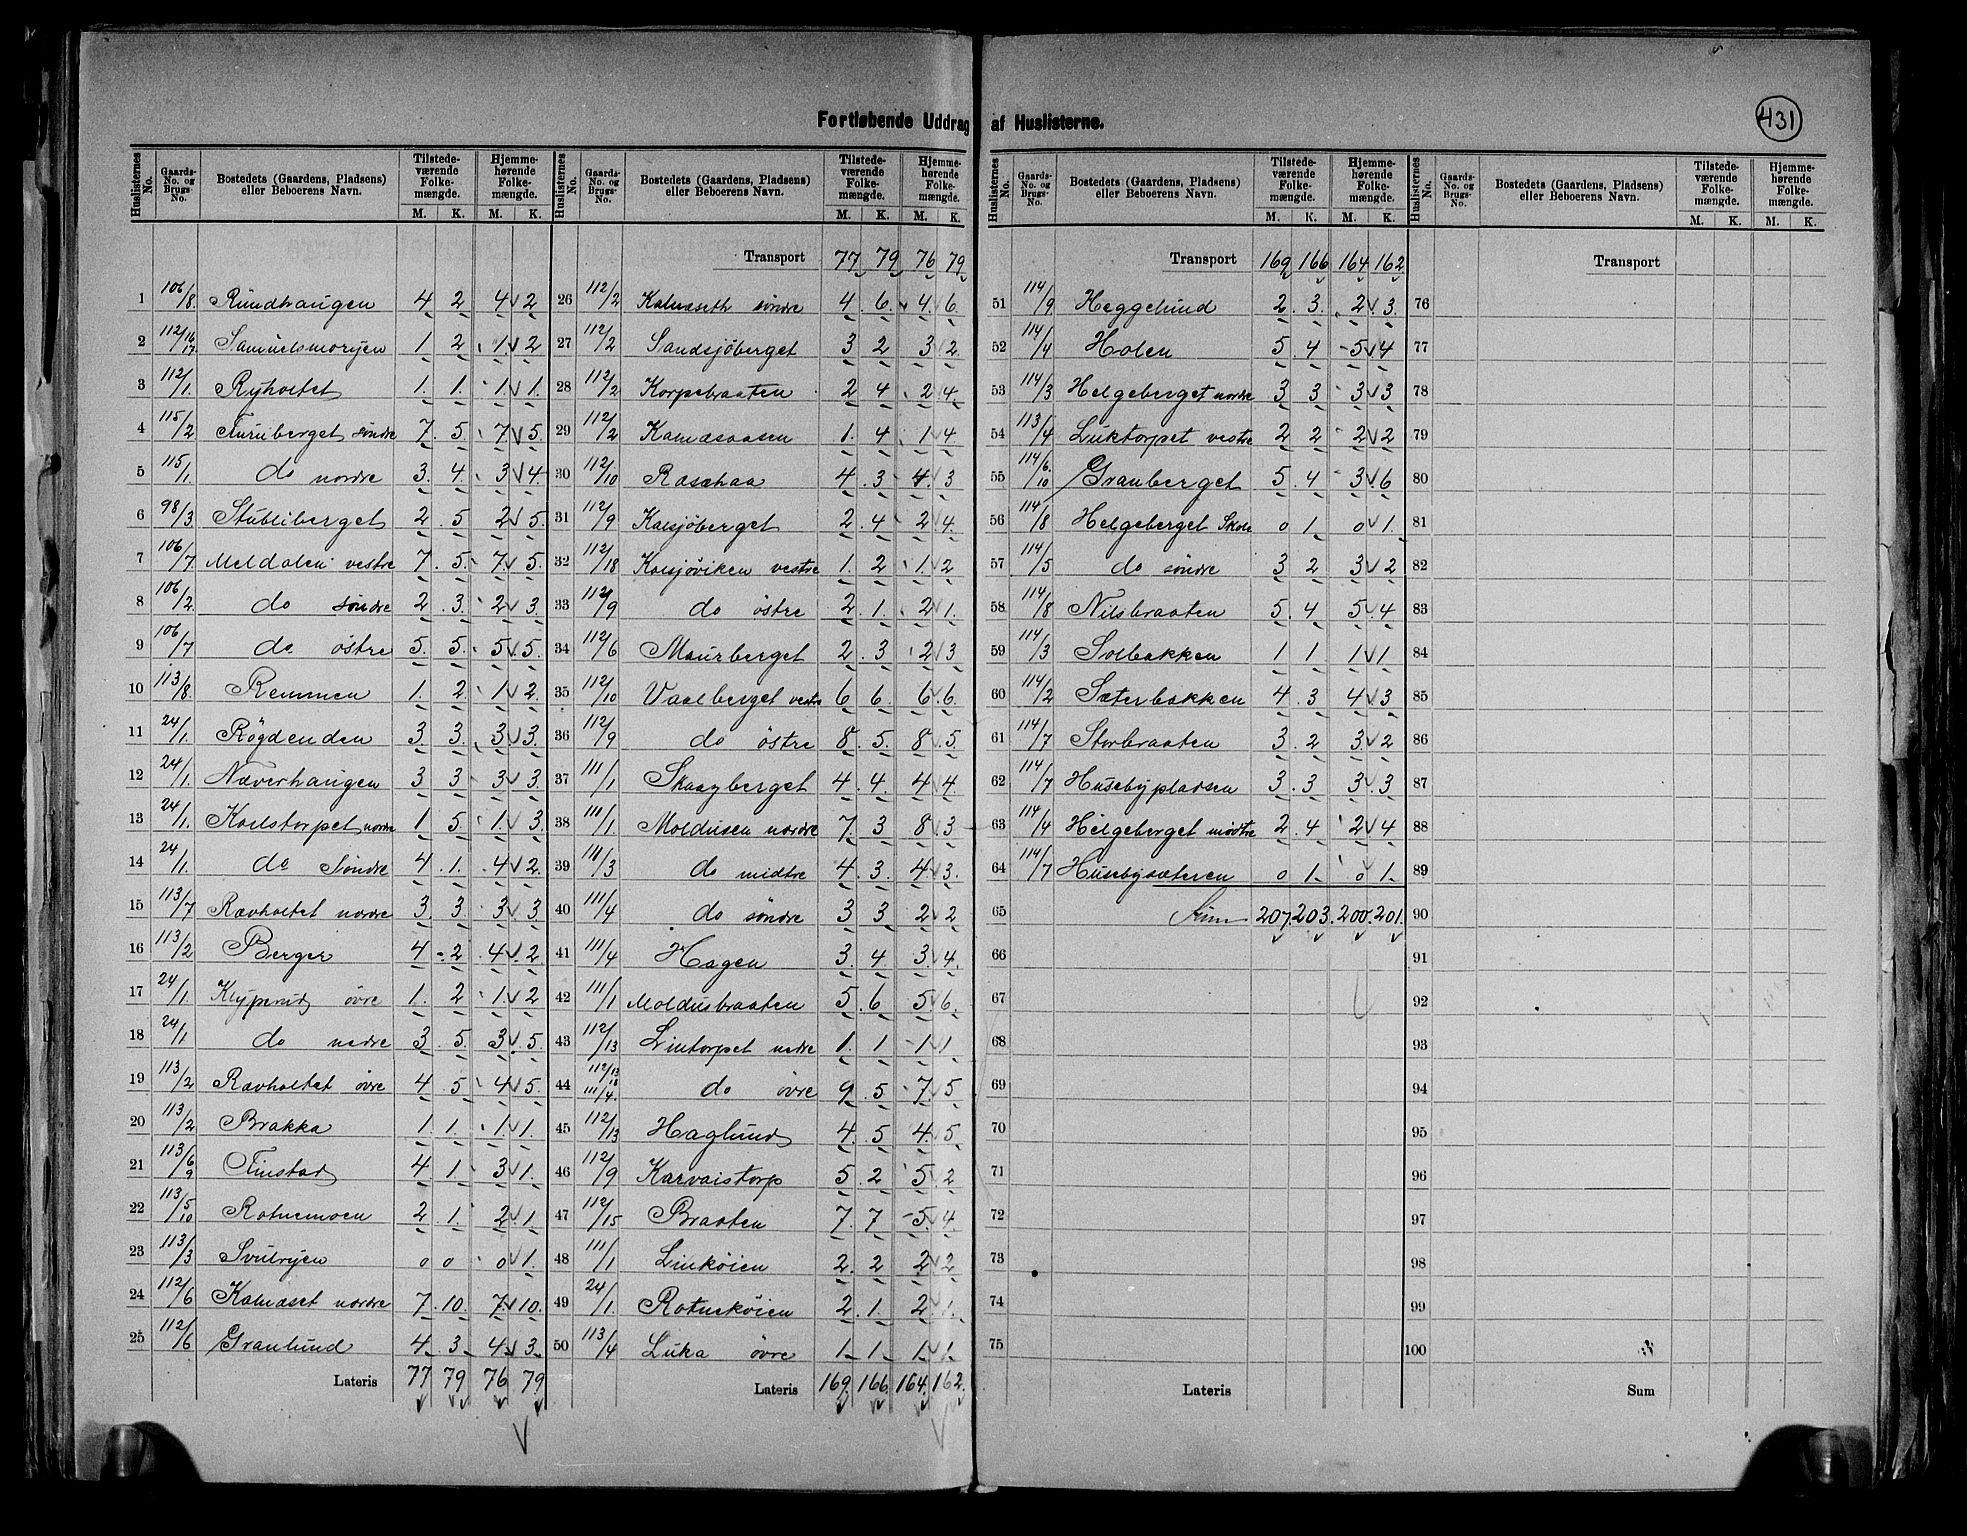 431
Fortløbende Uddrag af Huslisterne.
Huslisternes No. Gaards-No. og Brugs-No. Bostedets (Gaardens, Pladsens) eller Beboerens Navn. Tilstede-værende Folke-mængde. M. K. Hjemme-hørende Folke-mængde. M. K.
1 106/8 Rundhaugen 4 2 4 2
2 112/16 17 Samuelsmoryen 1 2 1 2
3 112/1 Ryholtet 1 1 1 1
4 115/2 Furuberget søndre 7 5 7 5
5 115/1 do nordre 3 4 3 4
6 98/3 Stubliberget 2 5 2 5
7 106/7 Meldalen vestre 7 5 7 5
8 106/2 do søndre 2 3 2 3
9 106/7 do östre 5 5 5 5
10 113/8 Remmen 1 2 1 2
11 24/1 Rögdenden 3 3 3 3
12 24/1 Næverhaugen 3 3 3 3
13 24/1 Karlstorpet nordre 1 5 1 3
14 24/1 do Søndre 4 1 4 2
15 113/7 Rævholtet nordre 3 3 3 3
16 113/2 Berger 4 2 4 2
17 24/1 Kypernd øvre 1 2 1 2
18 24/1 do nedre 3 5 3 5
19 113/2 Rævholtet øvre 4 5 4 5
20 113/2 Brakka 1 1 1 1
21 113/6 9 Finstad 4 1 3 1
22 113/5 10 Rotnemoen 2 1 2 1
23 113/3 Svulryen 0 0 0 1
24 112/6 Kalnæset nordre 7 10 7 10
25 112/6 Granlund 4 3 4 3
Lateris 77 79 76 79
Huslisternes No. Gaards-No. og Brugs-No. Bostedets (Gaardens, Pladsens) eller Beboerens Navn. Tilstede-værende Folke-mængde. M. K. Hjemme-hørende Folke-mængde. M. K.
Transport 77 79 76 79
26 112/2 Kalnæseth søndre 4 6 4 6
27 112/2 Sandsjöberget 3 2 3 2
28 112/2 Korpebraaten 2 4 2 4
29 112/2 Kalnæsaasen 1 4 1 4
30 112/10 Rasehaa 4 3 4 3
31 112/9 Kalsjöberget 2 4 2 4
32 112/18 Kalsjöviken vestre 1 2 1 2
33 112/9 do östre 2 1 2 1
34 112/6 Maurberget 2 3 2 3
35 112/10 Vaalberget vestre 6 6 6 6
36 112/9 do östre 8 5 8 5
37 111/1 Skaagberget 4 4 4 4
38 111/1 Moldusen nordre 7 3 8 3
39 111/3 do midtre 4 3 4 3
40 111/4 do söndre 3 3 2 2
41 111/4 Hagen 3 4 3 4
42 111/1 Moldusbraaten 5 6 5 6
43 112/13 Lintorpet nedre 1 1 1 1
44 112/13 18 111/4 do øvre 9 5 7 5
45 112/13 Haglund 4 5 4 5
46 112/9 Karvaistorp 5 2 5 2
47 112/15 Braaten 7 7 5 4
48 111/1 Linköien 2 2 2 2
49 24/1 Rotnesköien 2 1 2 1
50 113/4 Luka øvre 1 1 1 1
Lateris 169 166 164 162
Huslisternes No. Gaards-No. og Brugs-No. Bostedets (Gaardens, Pladsens) eller Beboerens Navn. Tilstede-værende Folke-mængde. M. K. Hjemme-hørende Folke-mængde. M. K.
Transport 169 166 164 162
51 114/9 Heggelund 2 3 2 3
52 114/4 Holen 5 4 5 4
53 114/3 Helgeberget nordre 3 3 3 3
54 113/4 Luktorpet vestre 2 2 2 2
55 114/6 10 Granberget 5 4 3 6
56 114/8 Helgeberget Skole 0 1 0 1
57 114/5 do søndre 3 2 3 2
58 114/8 Nilsbraaten 5 4 5 4
59 114/3 Solbakken 1 1 1 1
60 114/2 Sæterbakken 4 3 4 3
61 114/7 Storbraaten 3 2 3 2
62 114/7 Husebypladsen 3 3 3 3
63 114/4 Helgeberget midtre 2 4 2 4
64 114/7 Husebysæteren 0 1 0 1
65 Sum 207 203 200 201
66
67
68
69
70
71
72
73
74
75
Lateris
Huslisternes No. Gaards-No. og Brugs-No. Bostedets (Gaardens, Pladsens) eller Beboerens Navn. Tilstede-værende Folke-mængde. M. K. Hjemme-hørende Folke-mængde. M. K.
Transport
76
77
78
79
80
81
82
83
84
85
86
87
88
89
90
91
92
93
94
95
96
97
98
99
100
Sum